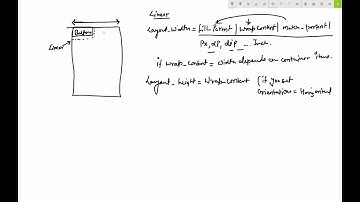 Linear
Button
Linear
Layout_width = fill_Parent | Wrap_Content | match_parent |
Px, dp, dip ... Inch.
if wrap_content = width depends on container items.
Layout_height = Wrap_Content (if you set
Orientation = Horizontal